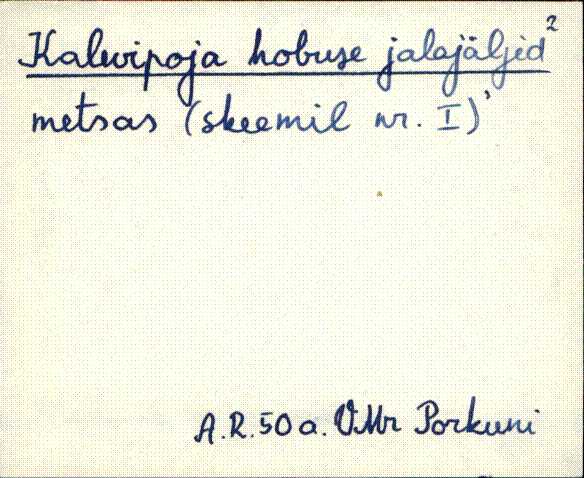 Kalevipoja hobuse jalajäljed²
metsas (skeemil nr. I)'
A.R. 50 a. VMr Porkuni